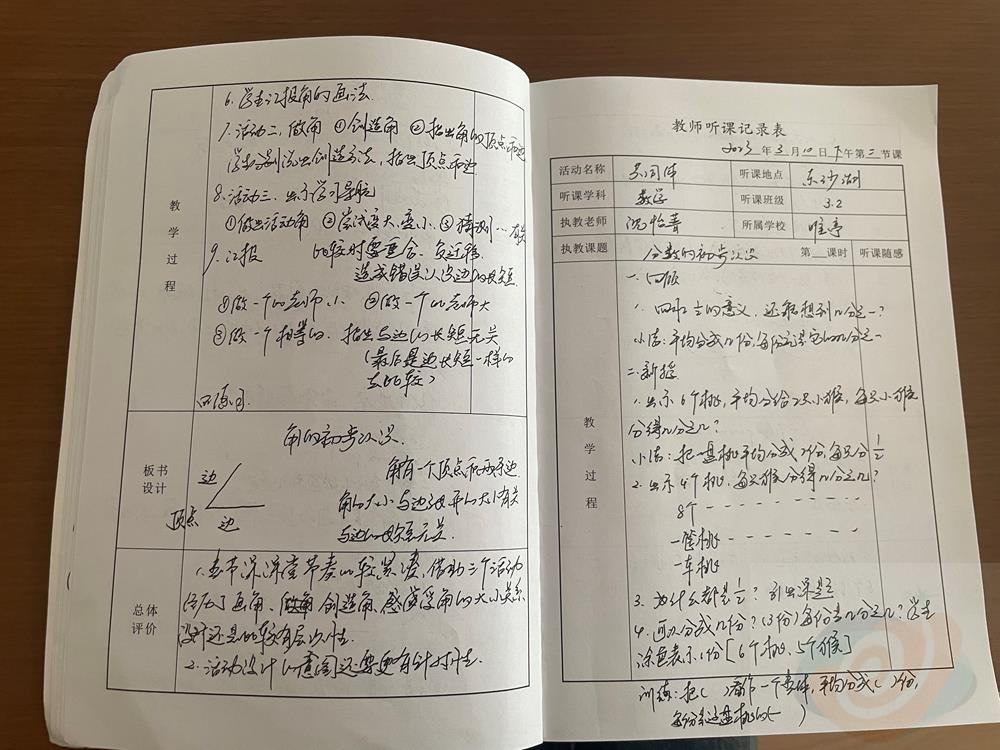 6. 学生汇报角的画法.
7. 活动二,做角 ①创造角 ②指出角的顶点和边
学生分别说出创造方法,指出顶点和边
8. 活动三,出示学习导航
①做出活动角 ②尝试变大、变小、③猜测
9. 汇报 比较时要重合、负迁移
造成错误认为边的长短
①做一个比老师小 ②做一个比老师大
③做一个相等的. 指出与边的长短无关
(最后是边长短一样的
去比较)
教学过程
角的初步认识.
板书设计
边
顶点 边
角有一个顶点和两条边
角的大小与边张开的大小有关
与边的长短无关.
总体评价
1. 这节课课堂节奏比较紧凑,借助三个活动
画角、创造角、感受角的大小关系
设计还是比较有层次性.
2. 活动设计的意图还要更有针对性.
教师听课记录表
2023年3月10日下午第二节课
活动名称 听课地点 东沙湖
听课学科 数学 听课班级 3.2
执教老师 沈怡菁 所属学校 唯亭
执教课题 分数的初步认识 第 课时 听课随感
教学过程
一. 回顾
1. 回和½的意义,还能想到几分之一?
小结:平均分成几份,每份就是它的几分之一
二. 新授
1. 出示6个桃,平均分给2只小猴,每只小猴
分得几分之几?
小结:把一盘桃平均分成2份,每只分½
2. 出示4个桃,每只猴分得几分之几?
8个 - - - - - -
一筐桃 - - - - - -
一车桃
3. 为什么都是½? 引出课题
4. 可以分成几份?(3份)每份是几分之几?学生
涂色表示1份[6个桃、5个猴]
训练:把( )看作一个整体,平均分成( )份,
每份是这盘桃的( )